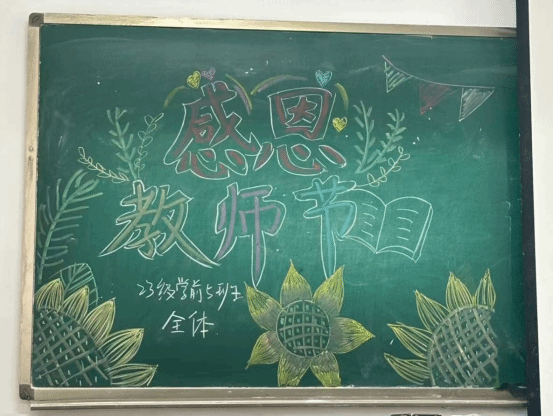 感恩
教师节
23级学前5班
全体